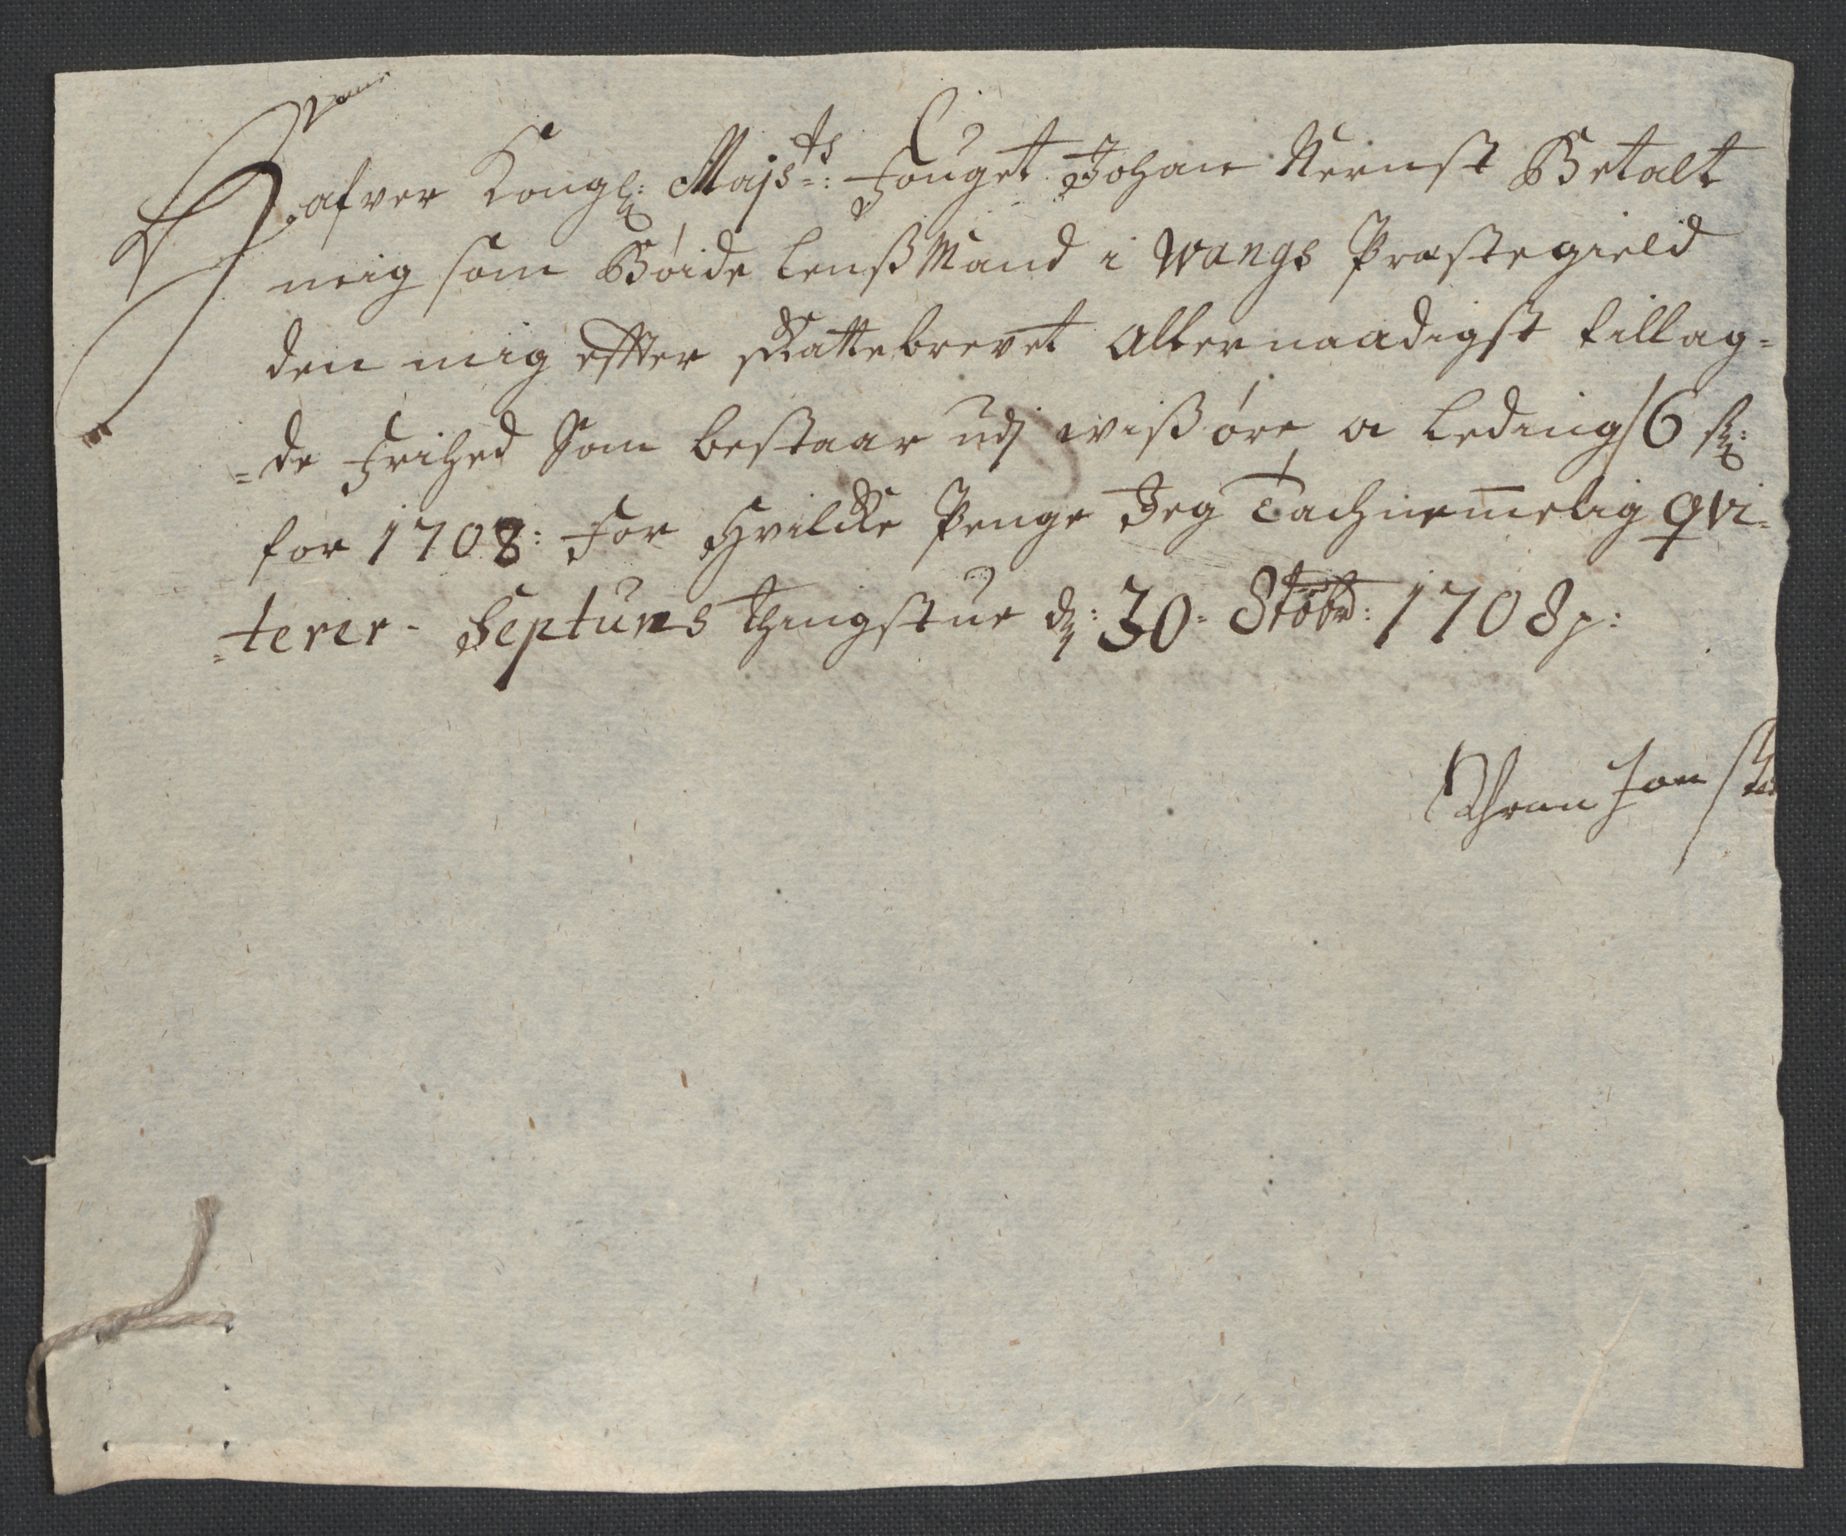 Hafver Kongl: Majsts: Fouget Johan Nernst Betalt
mig som Böide LensMand i Wangs Præstegield
den mig effter skattebrevet Allernaadigst tillag=
=de Frihed Som bestaar udj wißöre a Leding 16 s:
for 1708: For Hvilcke Penge Jeg Tachnemelig qvi=
=terer - Septuns thingstue d: 30: 8tobr: 1708 p:
Jon